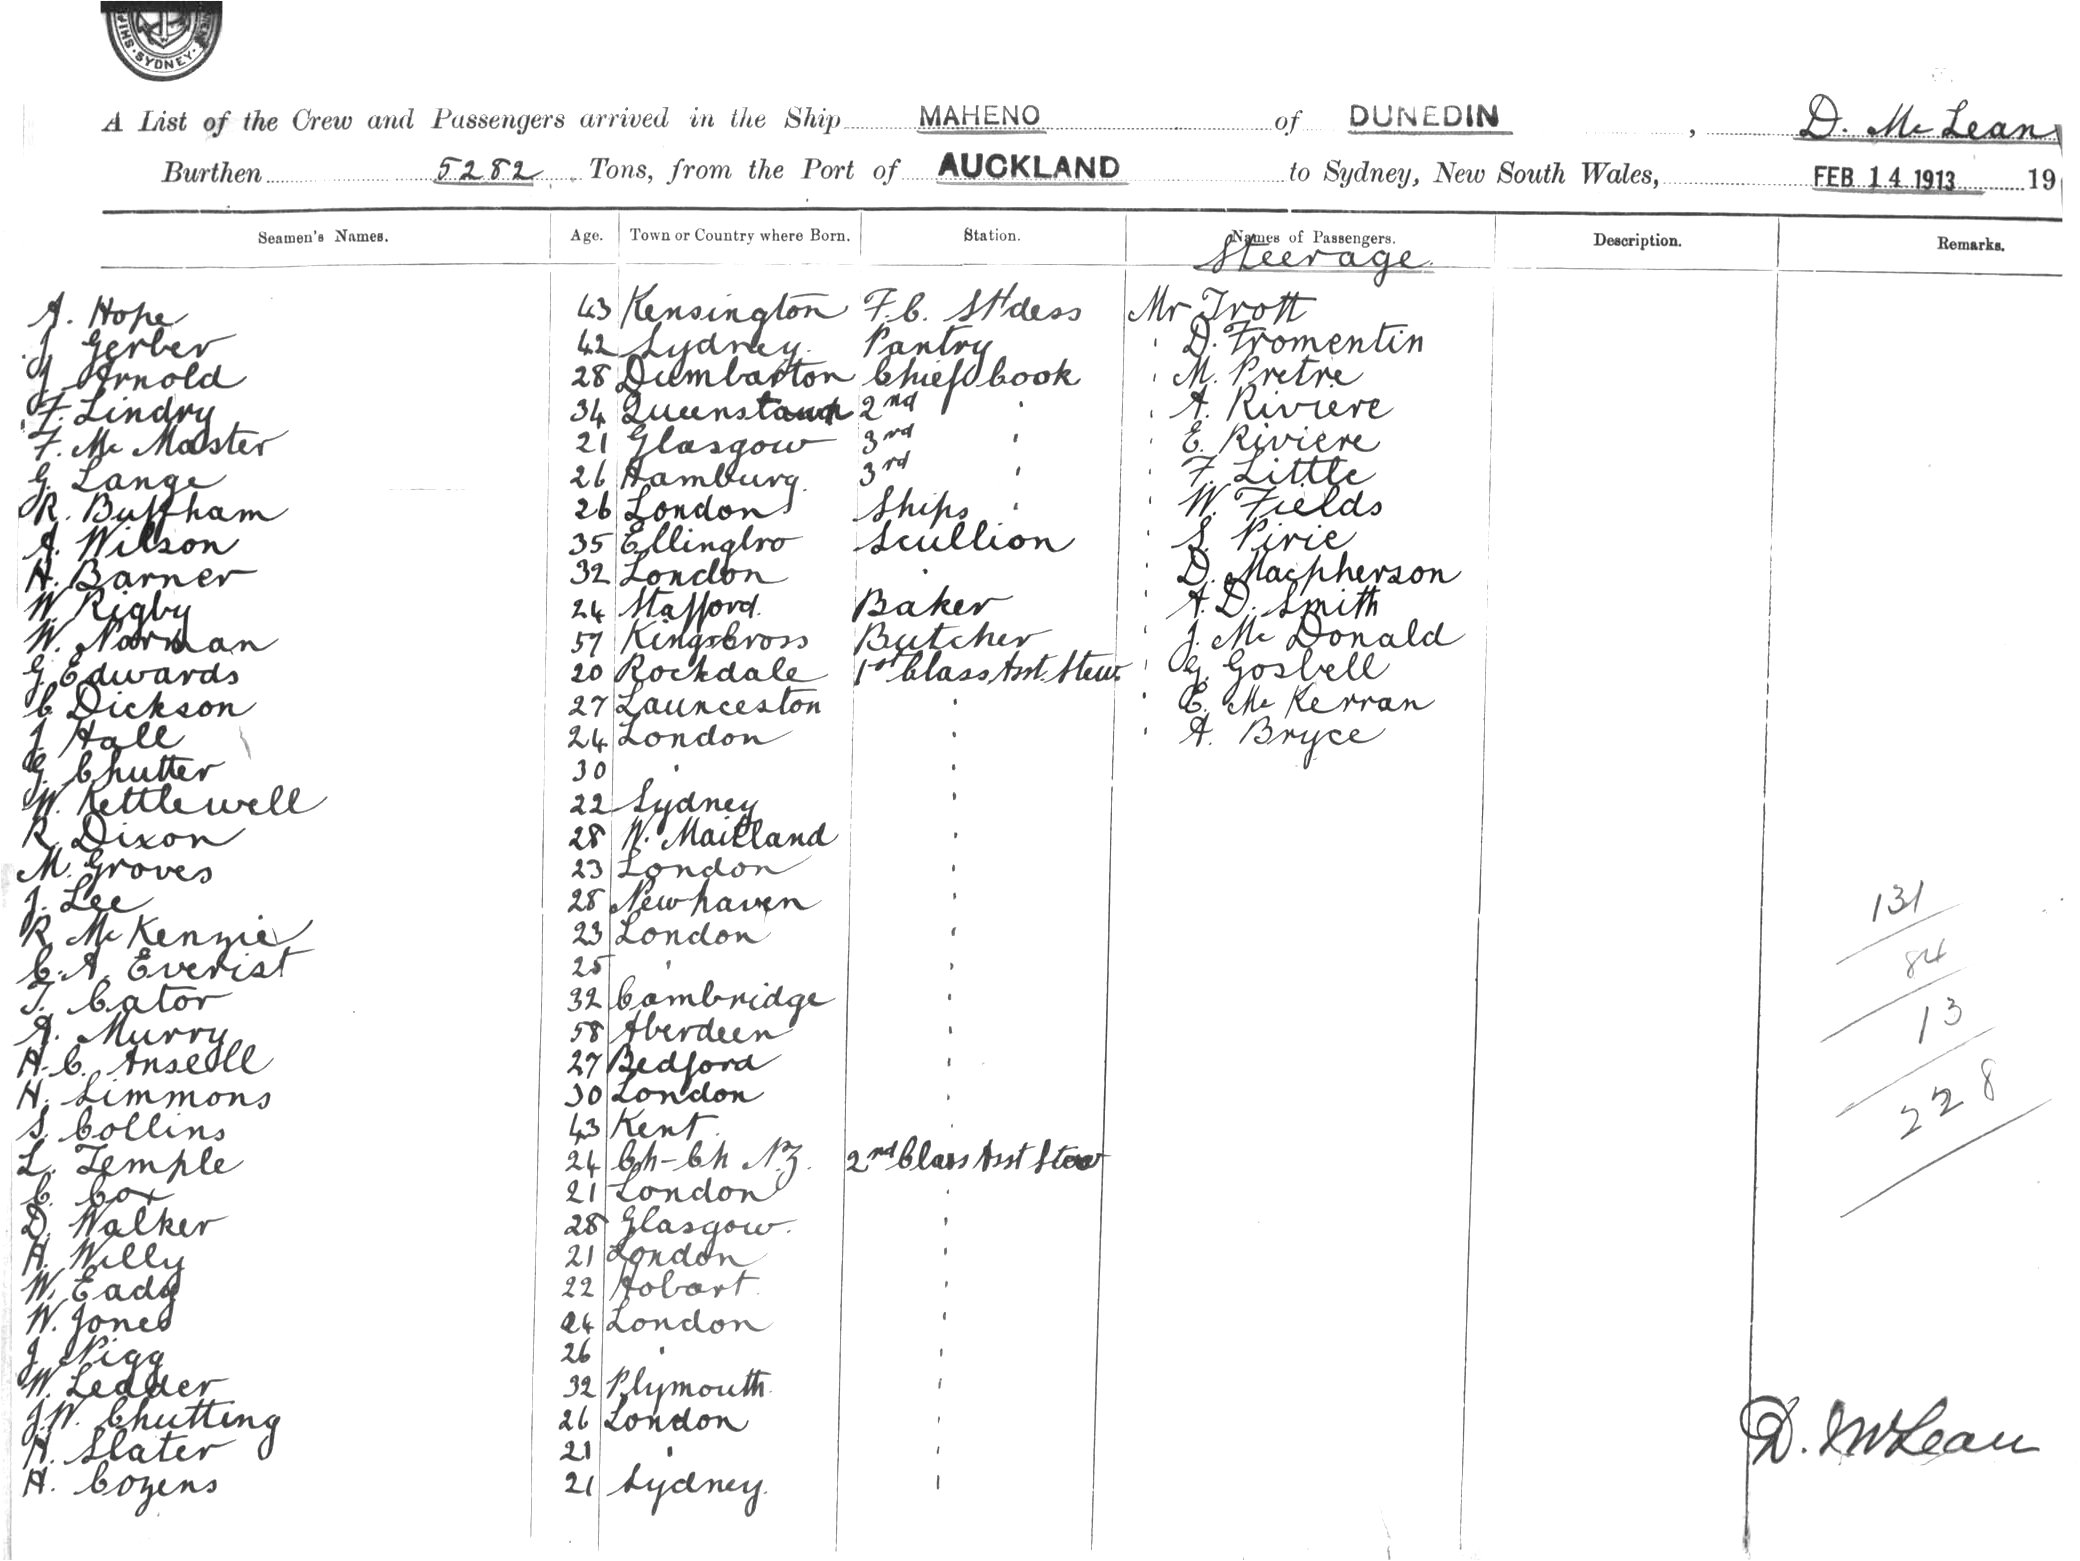 SHIP · SYDNEY ·
A List of the Crew and Passengers arrived in the Ship MAHENO of DUNEDIN, D. Mc Lean
Burthen 5282 Tons, from the Port of AUCKLAND to Sydney, New South Wales, FEB 14 1913 19
Seamen's Names. Age. Town or Country where Born. Station. Names of Passengers. Description. Remarks.
Steerage
A. Hope 43 Kensington F.C. St'dess Mr Trott
J Gerber 42 Sydney Pantry ' D. Fromentin
J Arnold 28 Dumbarton Chief Cook ' M. Pretre
F. Lindry 34 Queenstown 2nd ' ' A. Riviere
F. Mc Master 21 Glasgow 3rd ' ' E. Riviere
G. Lange 26 Hamburg 3rd ' ' F. Little
R. Buffham 26 London Ships ' ' W. Fields
A. Wilson 35 Scullion ' S. Pirie
H. Barner 32 London ' ' D. Macpherson
W. Rigby 24 Stafford Baker ' A. D. Smith
W. Norman 57 Kings Cross Butcher ' J. Mc Donald
G Edwards 20 Rockdale 1st Class Asst. Stew. ' G. Gosbell
C Dickson 27 Launceston ' ' E. Mc Kerran
J Hall 24 London ' ' A. Bryce
G. Chutter 30 ' '
W. Kettlewell 22 Sydney '
R Dixon 28 W. Maitland '
M. Groves 23 London '
J. Lee 28 Newhaven '
R Mc Kenzie 23 London '
C. A. Everist 25 ' '
T. Cator 32 Cambridge '
A. Murry 58 Aberdeen '
H. C. Ansell 27 Bedford '
H. Simmons 30 London '
S. Collins 43 Kent '
L. Temple 24 Ch-Ch N.Z. 2nd Class Asst Stew
C. Cox 21 London '
D. Walker 28 Glasgow. '
H. Willy 21 London '
W. Eady 22 Hobart '
W. Jones 24 London '
J. Pigg 26 ' '
W. Leader 32 Plymouth '
J.W. Chutting 26 London '
H. Slater 21 ' '
H. Cozens 21 Sydney. '
131
84
13
228
D. McLean